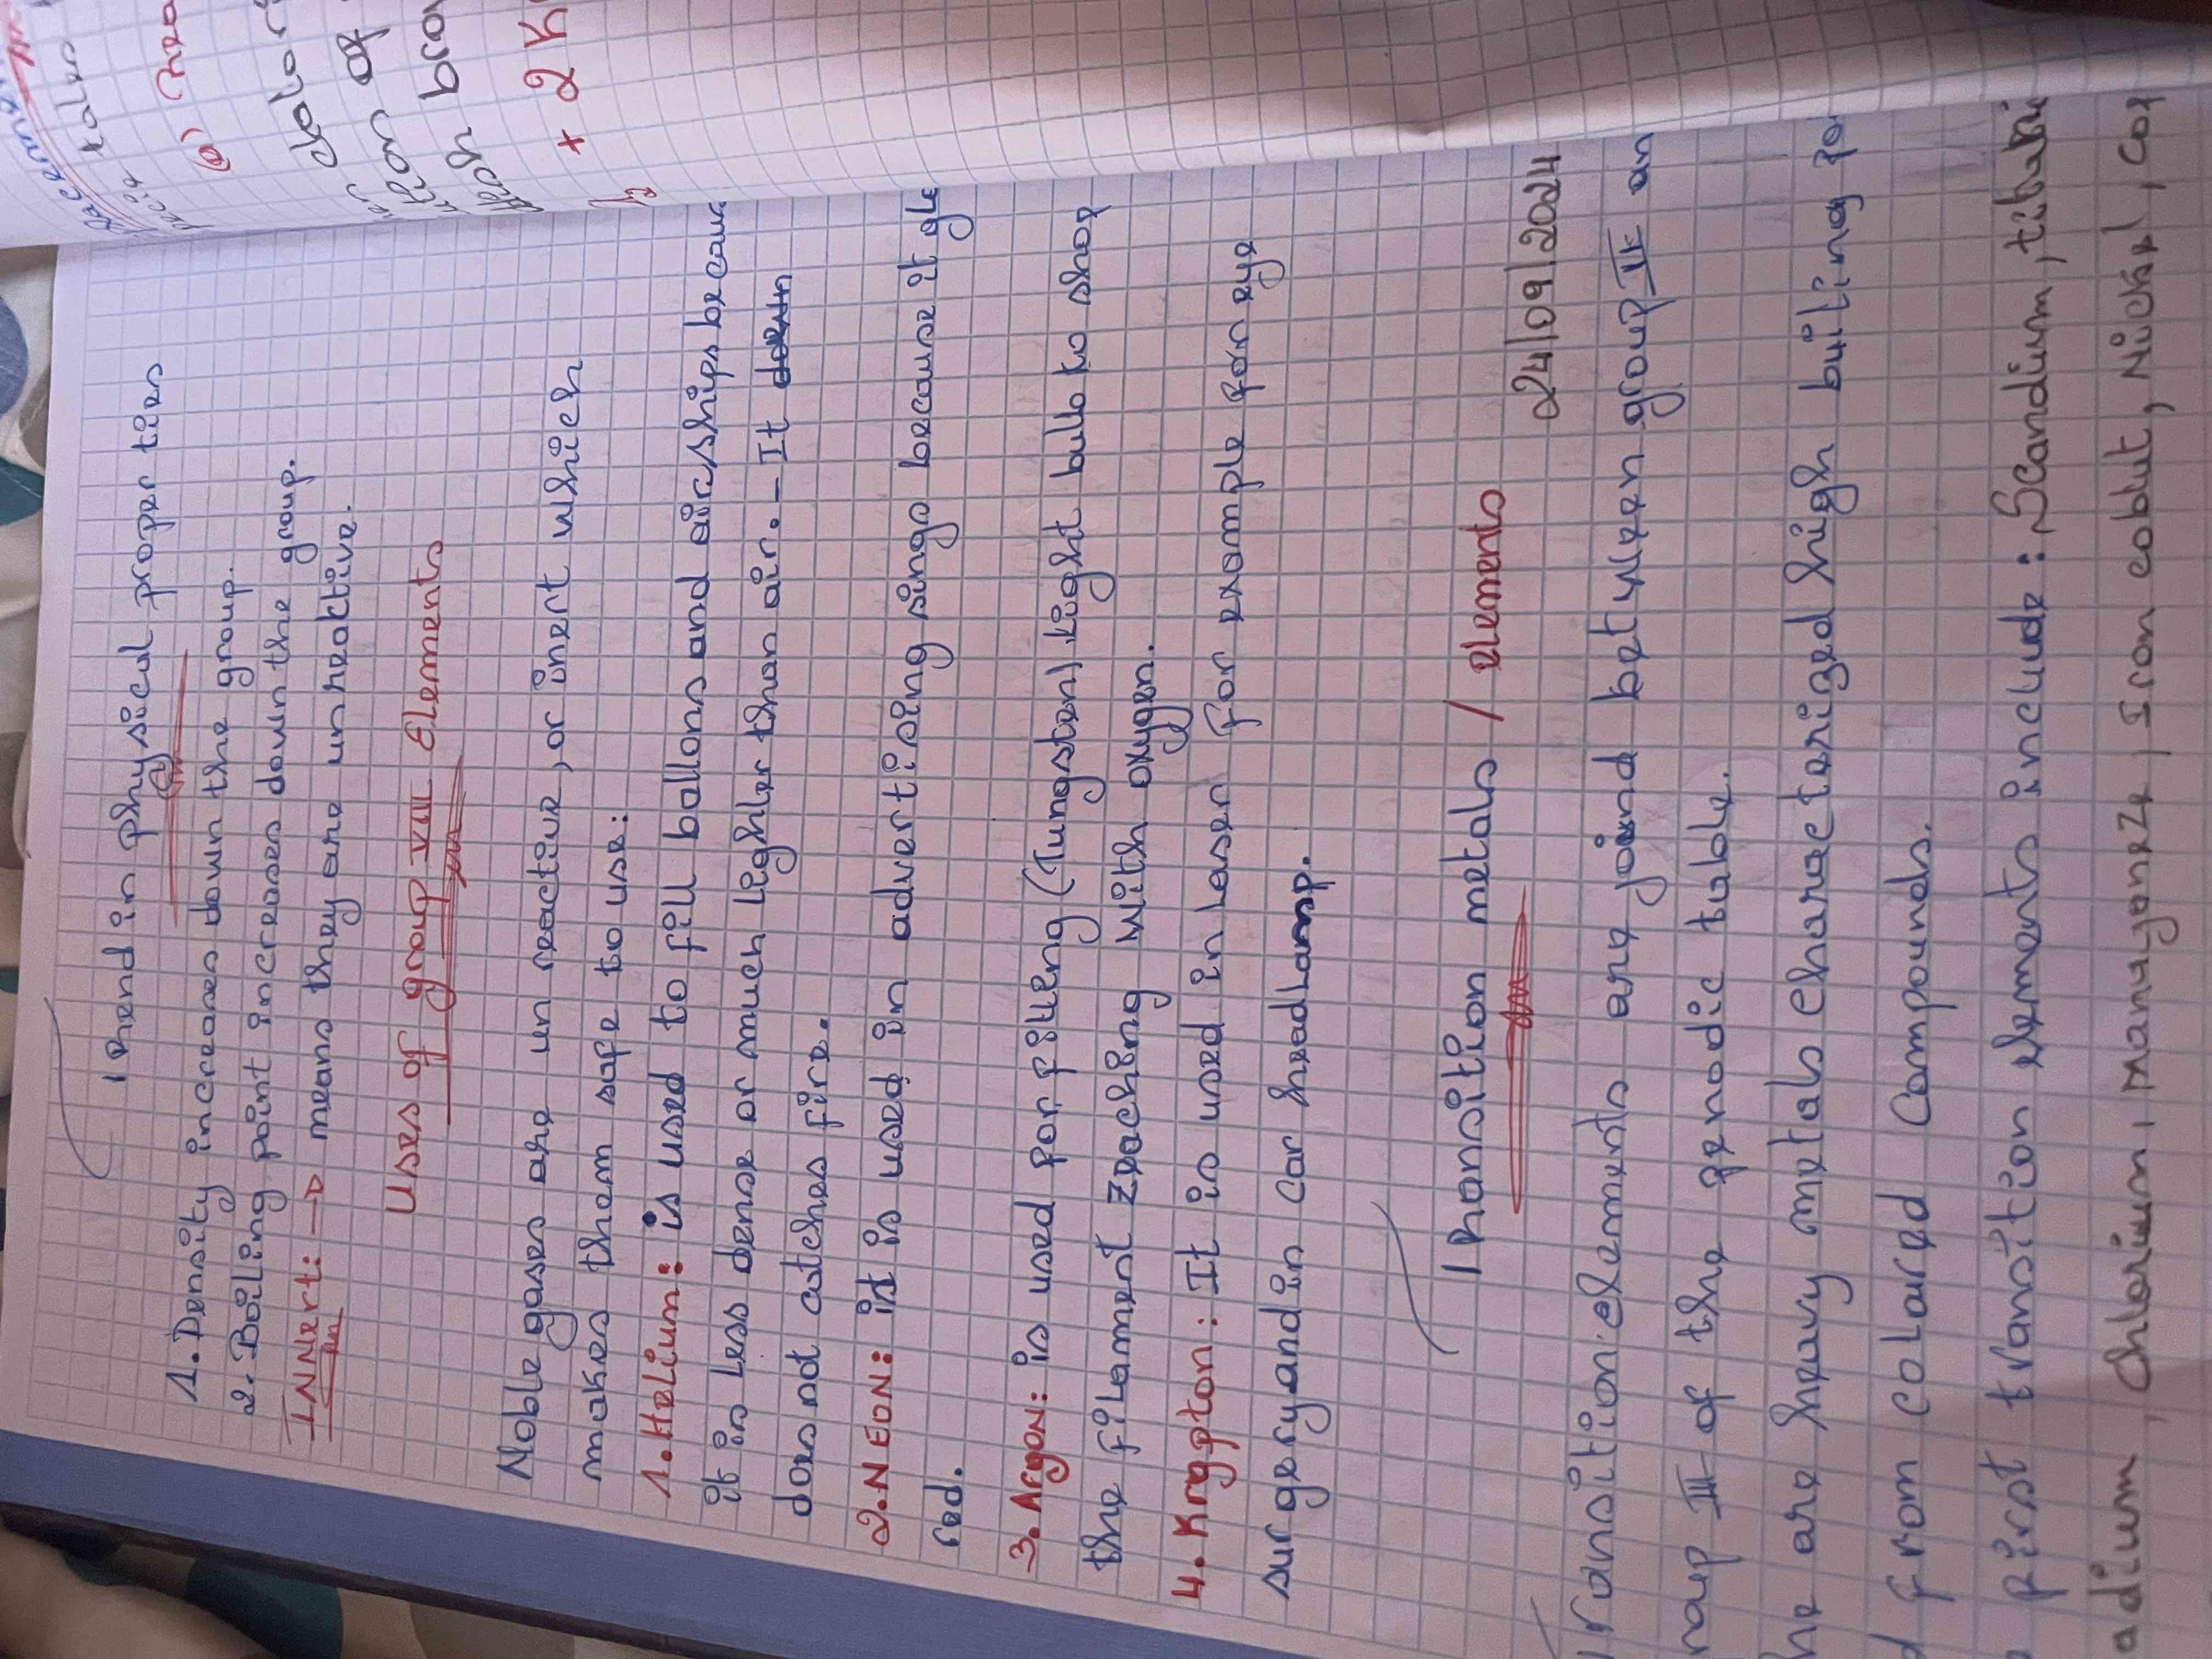 Trend in physical proper ties
1. Density increases down the group.
2. Boiling point increases down the group.
INNert: → means they are unreaktive.
Uses of group VIII Elements
Noble gases are un reactive, or inert which
makes them safe to use:
1. Helium: is used to fill ballons and airships becau
it is less dense or much lighter than air. - It
does not catches fire.
2. NEON: it is used in advertising sings because it glo
red.
3. Argon: is used for filleng (Tungsten) light bulb to shop
the filament zeaching with oxygen.
4. Krypton: It is used in laser for example for eye
surgery and in car headlamp.
Transition metals / elements
24/09/2024
Transition elements are joind between group II an
roup III of the periodic table.
he are heavy metals characterized high builing po
d from coloured compounds.
first transition elements include: Scandium, titani
adium, chlorium, manayoneze, Iron coblut, Nickel, cop
(a)
color
tion of
ish bro
+ 2 K